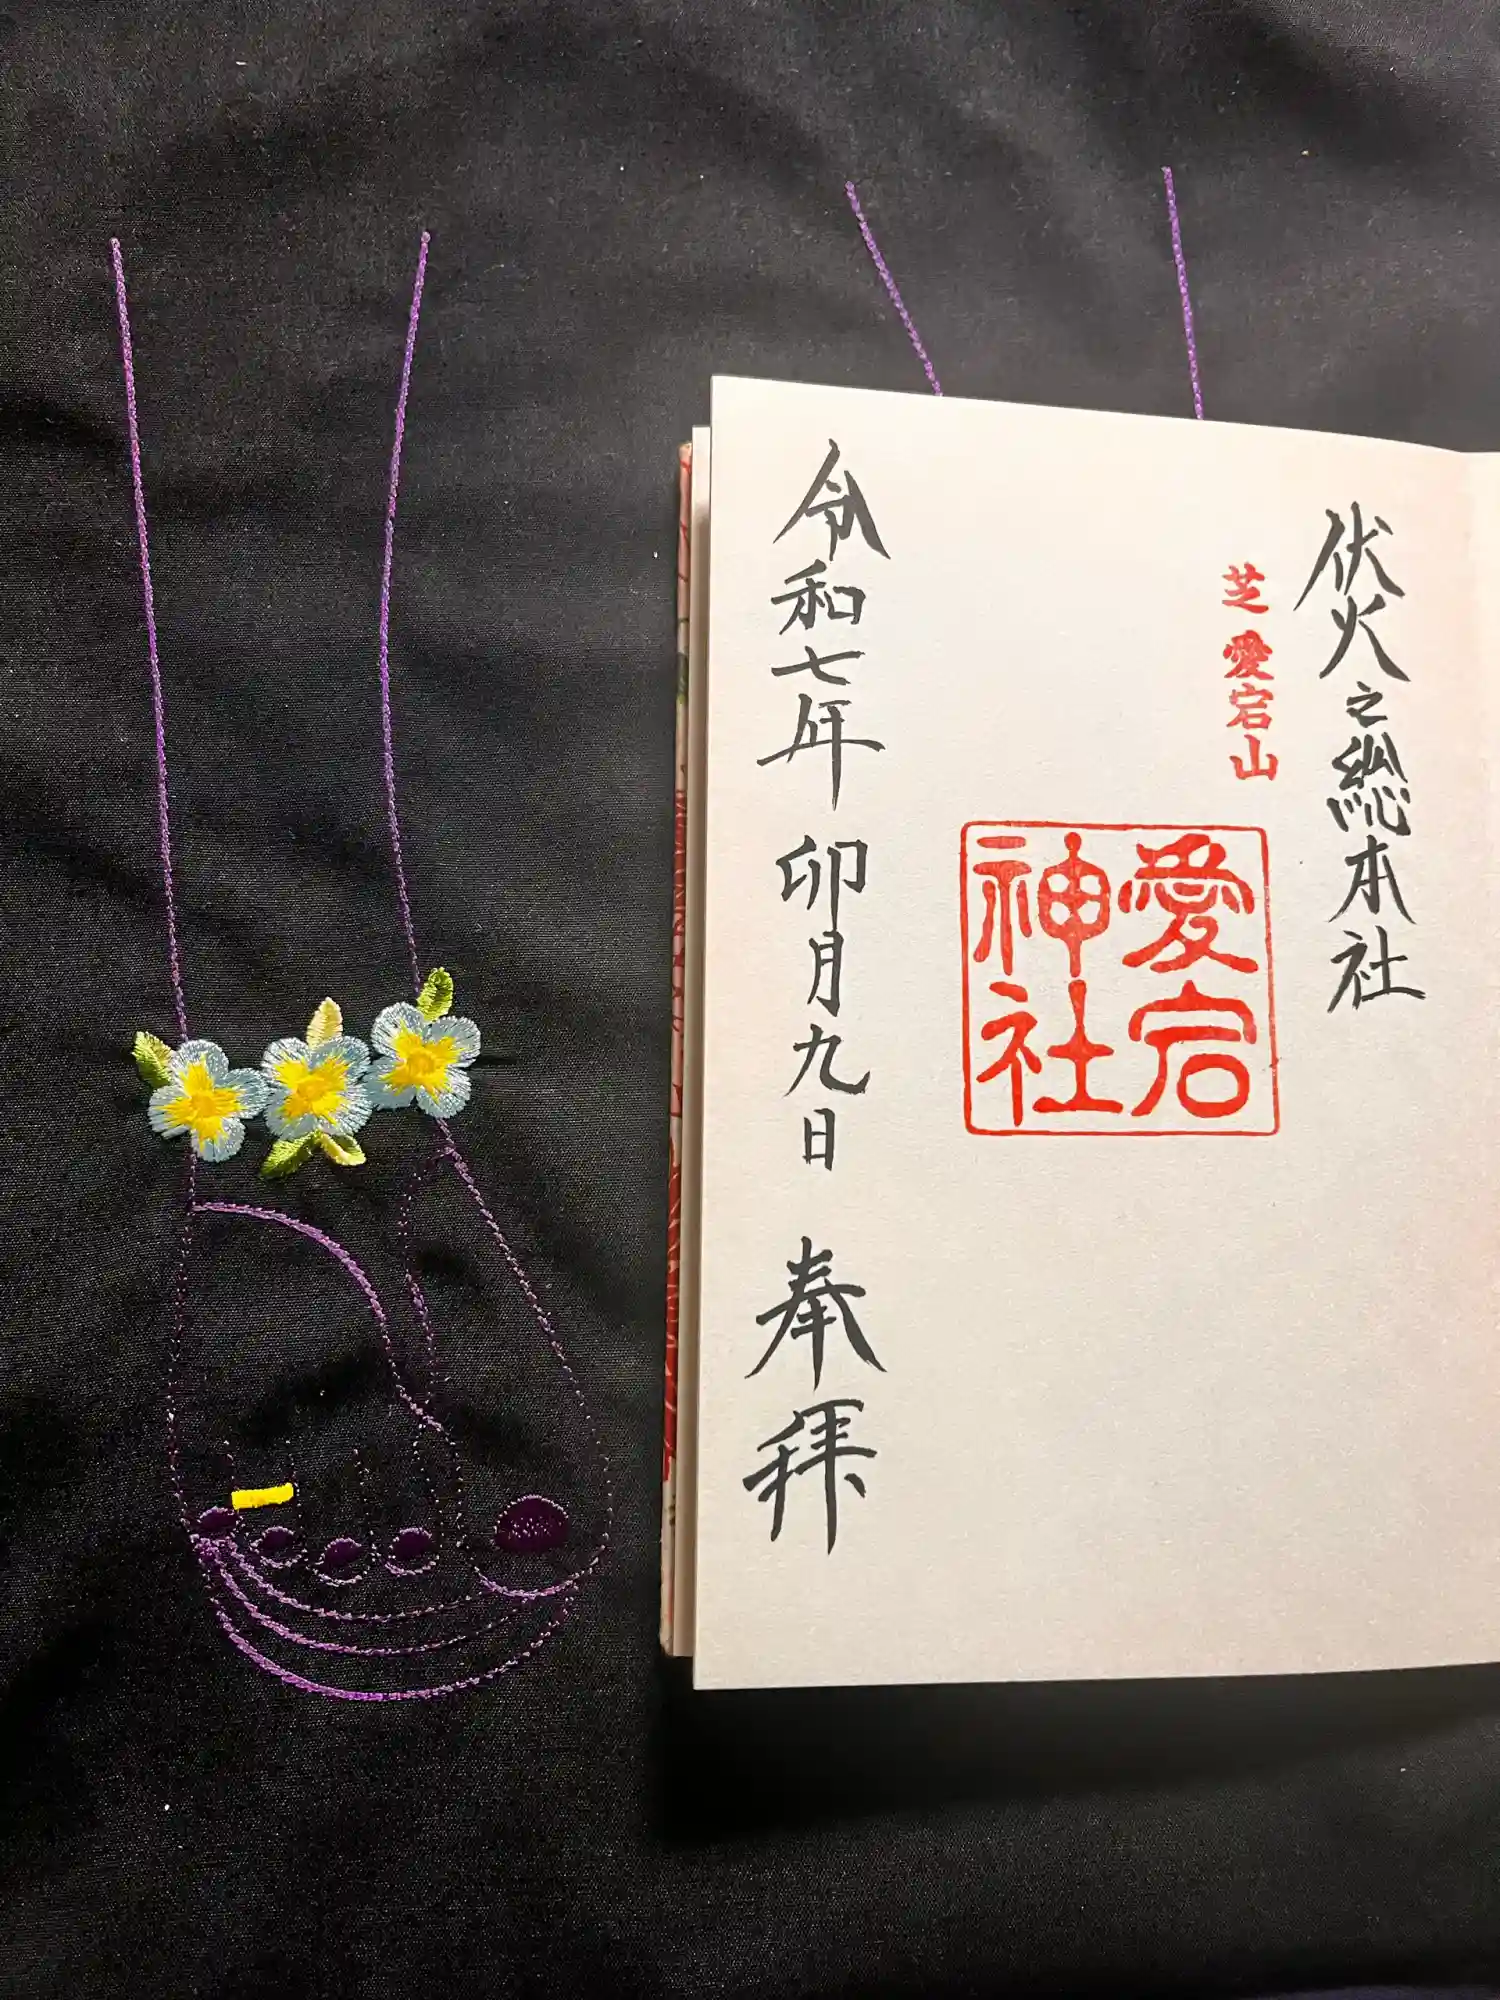 伏火之総本社
芝 愛宕山
愛宕
神社
令和七年 卯月九日 奉拝